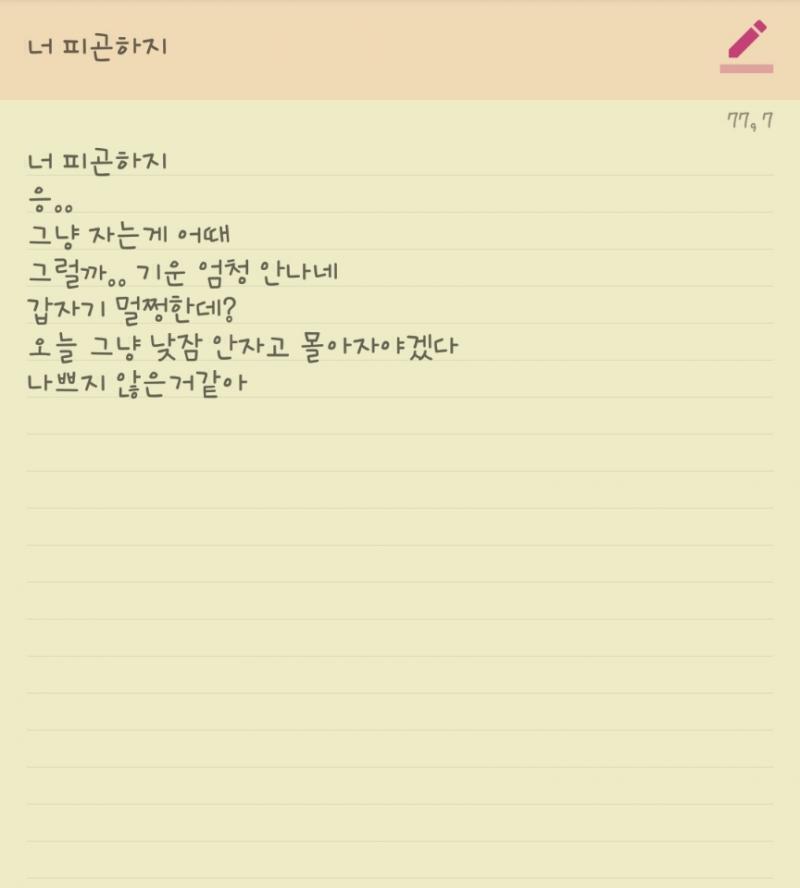 너 피곤하지
77, 7
너 피곤하지
응..
그냥 자는게 어때
그럴까.. 기운 엄청 안나네
갑자기 멀쩡한데?
오늘 그냥 낮잠 안자고 몰아자야겠다
나쁘지 않은거같아